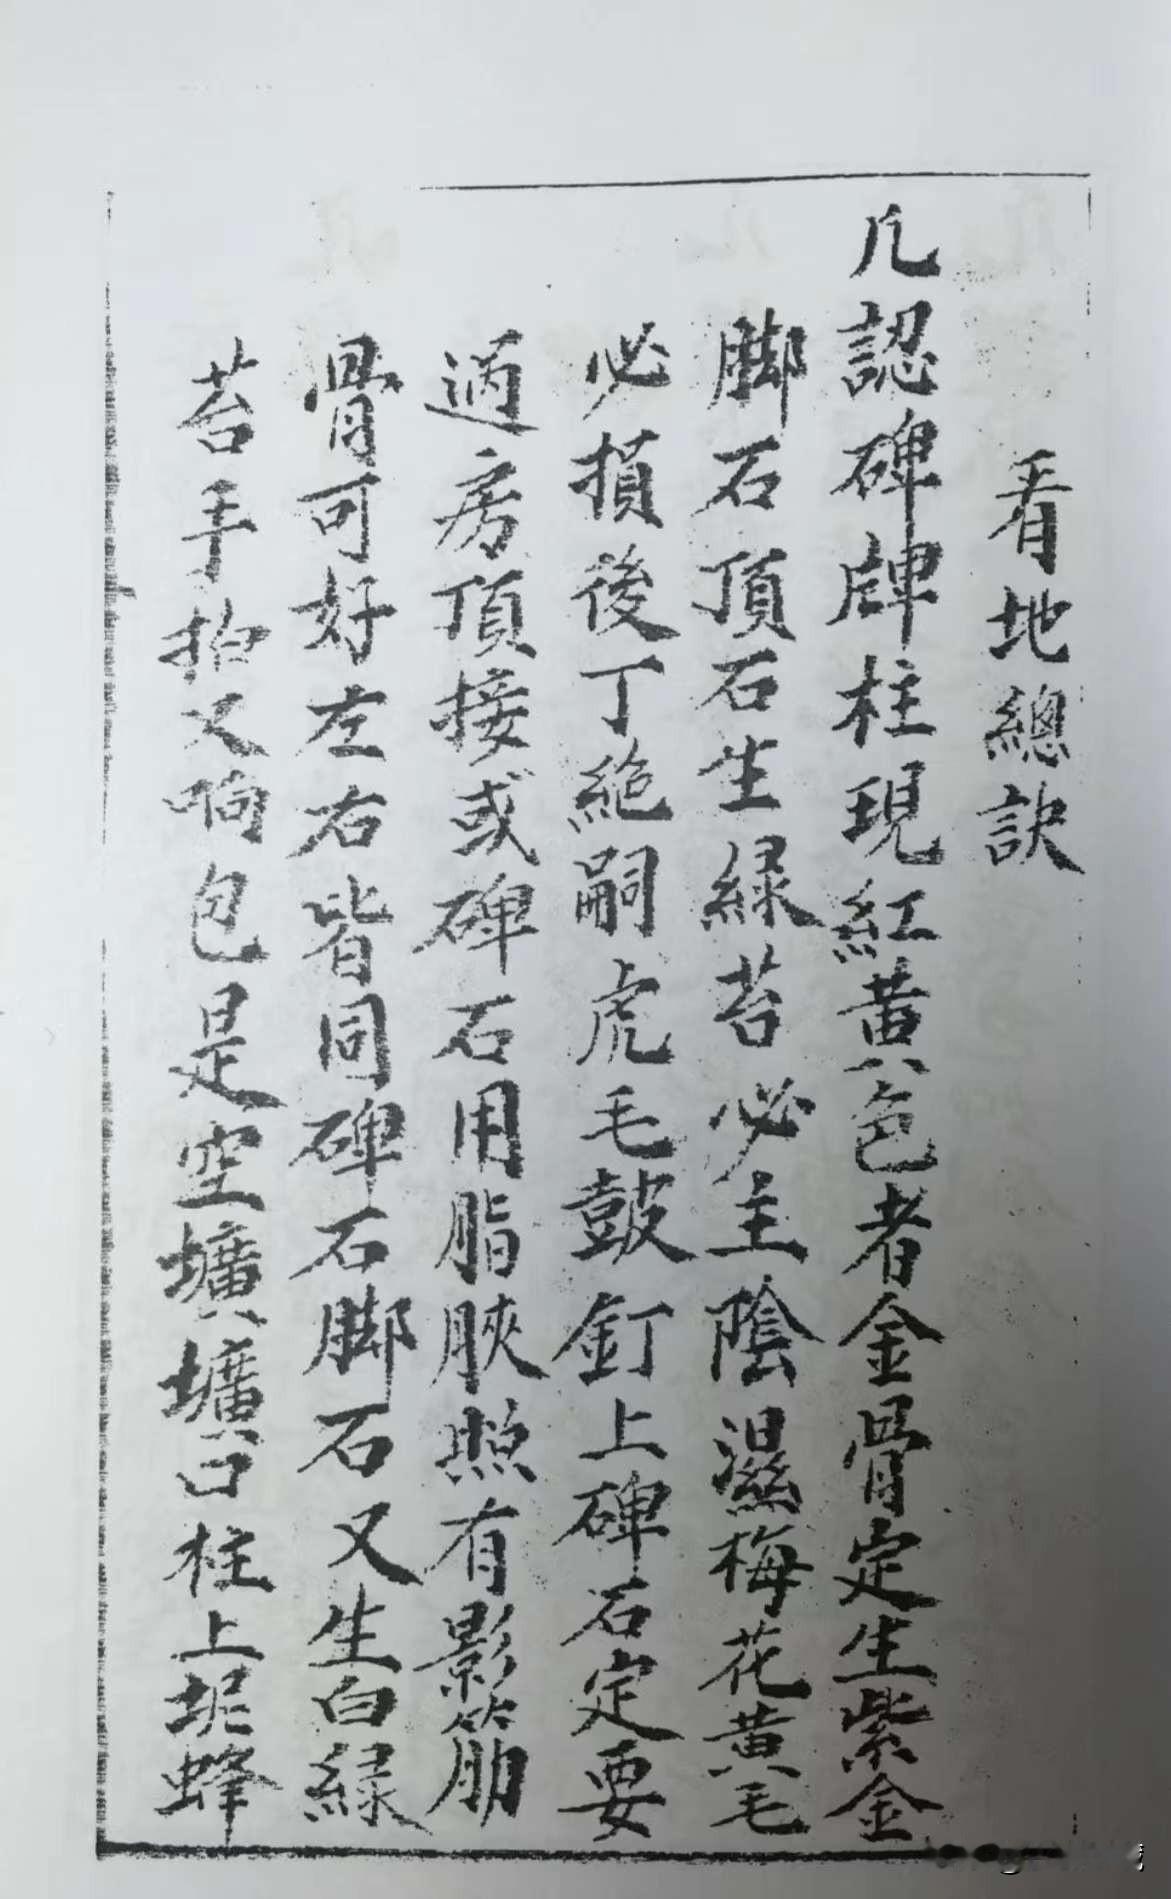 看地總訣
凡認碑牌柱現紅黃色者金骨定生紫金
脚石頂石生緑苔必主陰濕梅花黃毛
必損後丁絶嗣虎毛鼓釘上碑石定要
過房頂接或碑石用脂脥照有影筋
骨可好左右皆同碑石脚石又生白緑
苔手拍又响包是空壙壙口柱上坭蜂